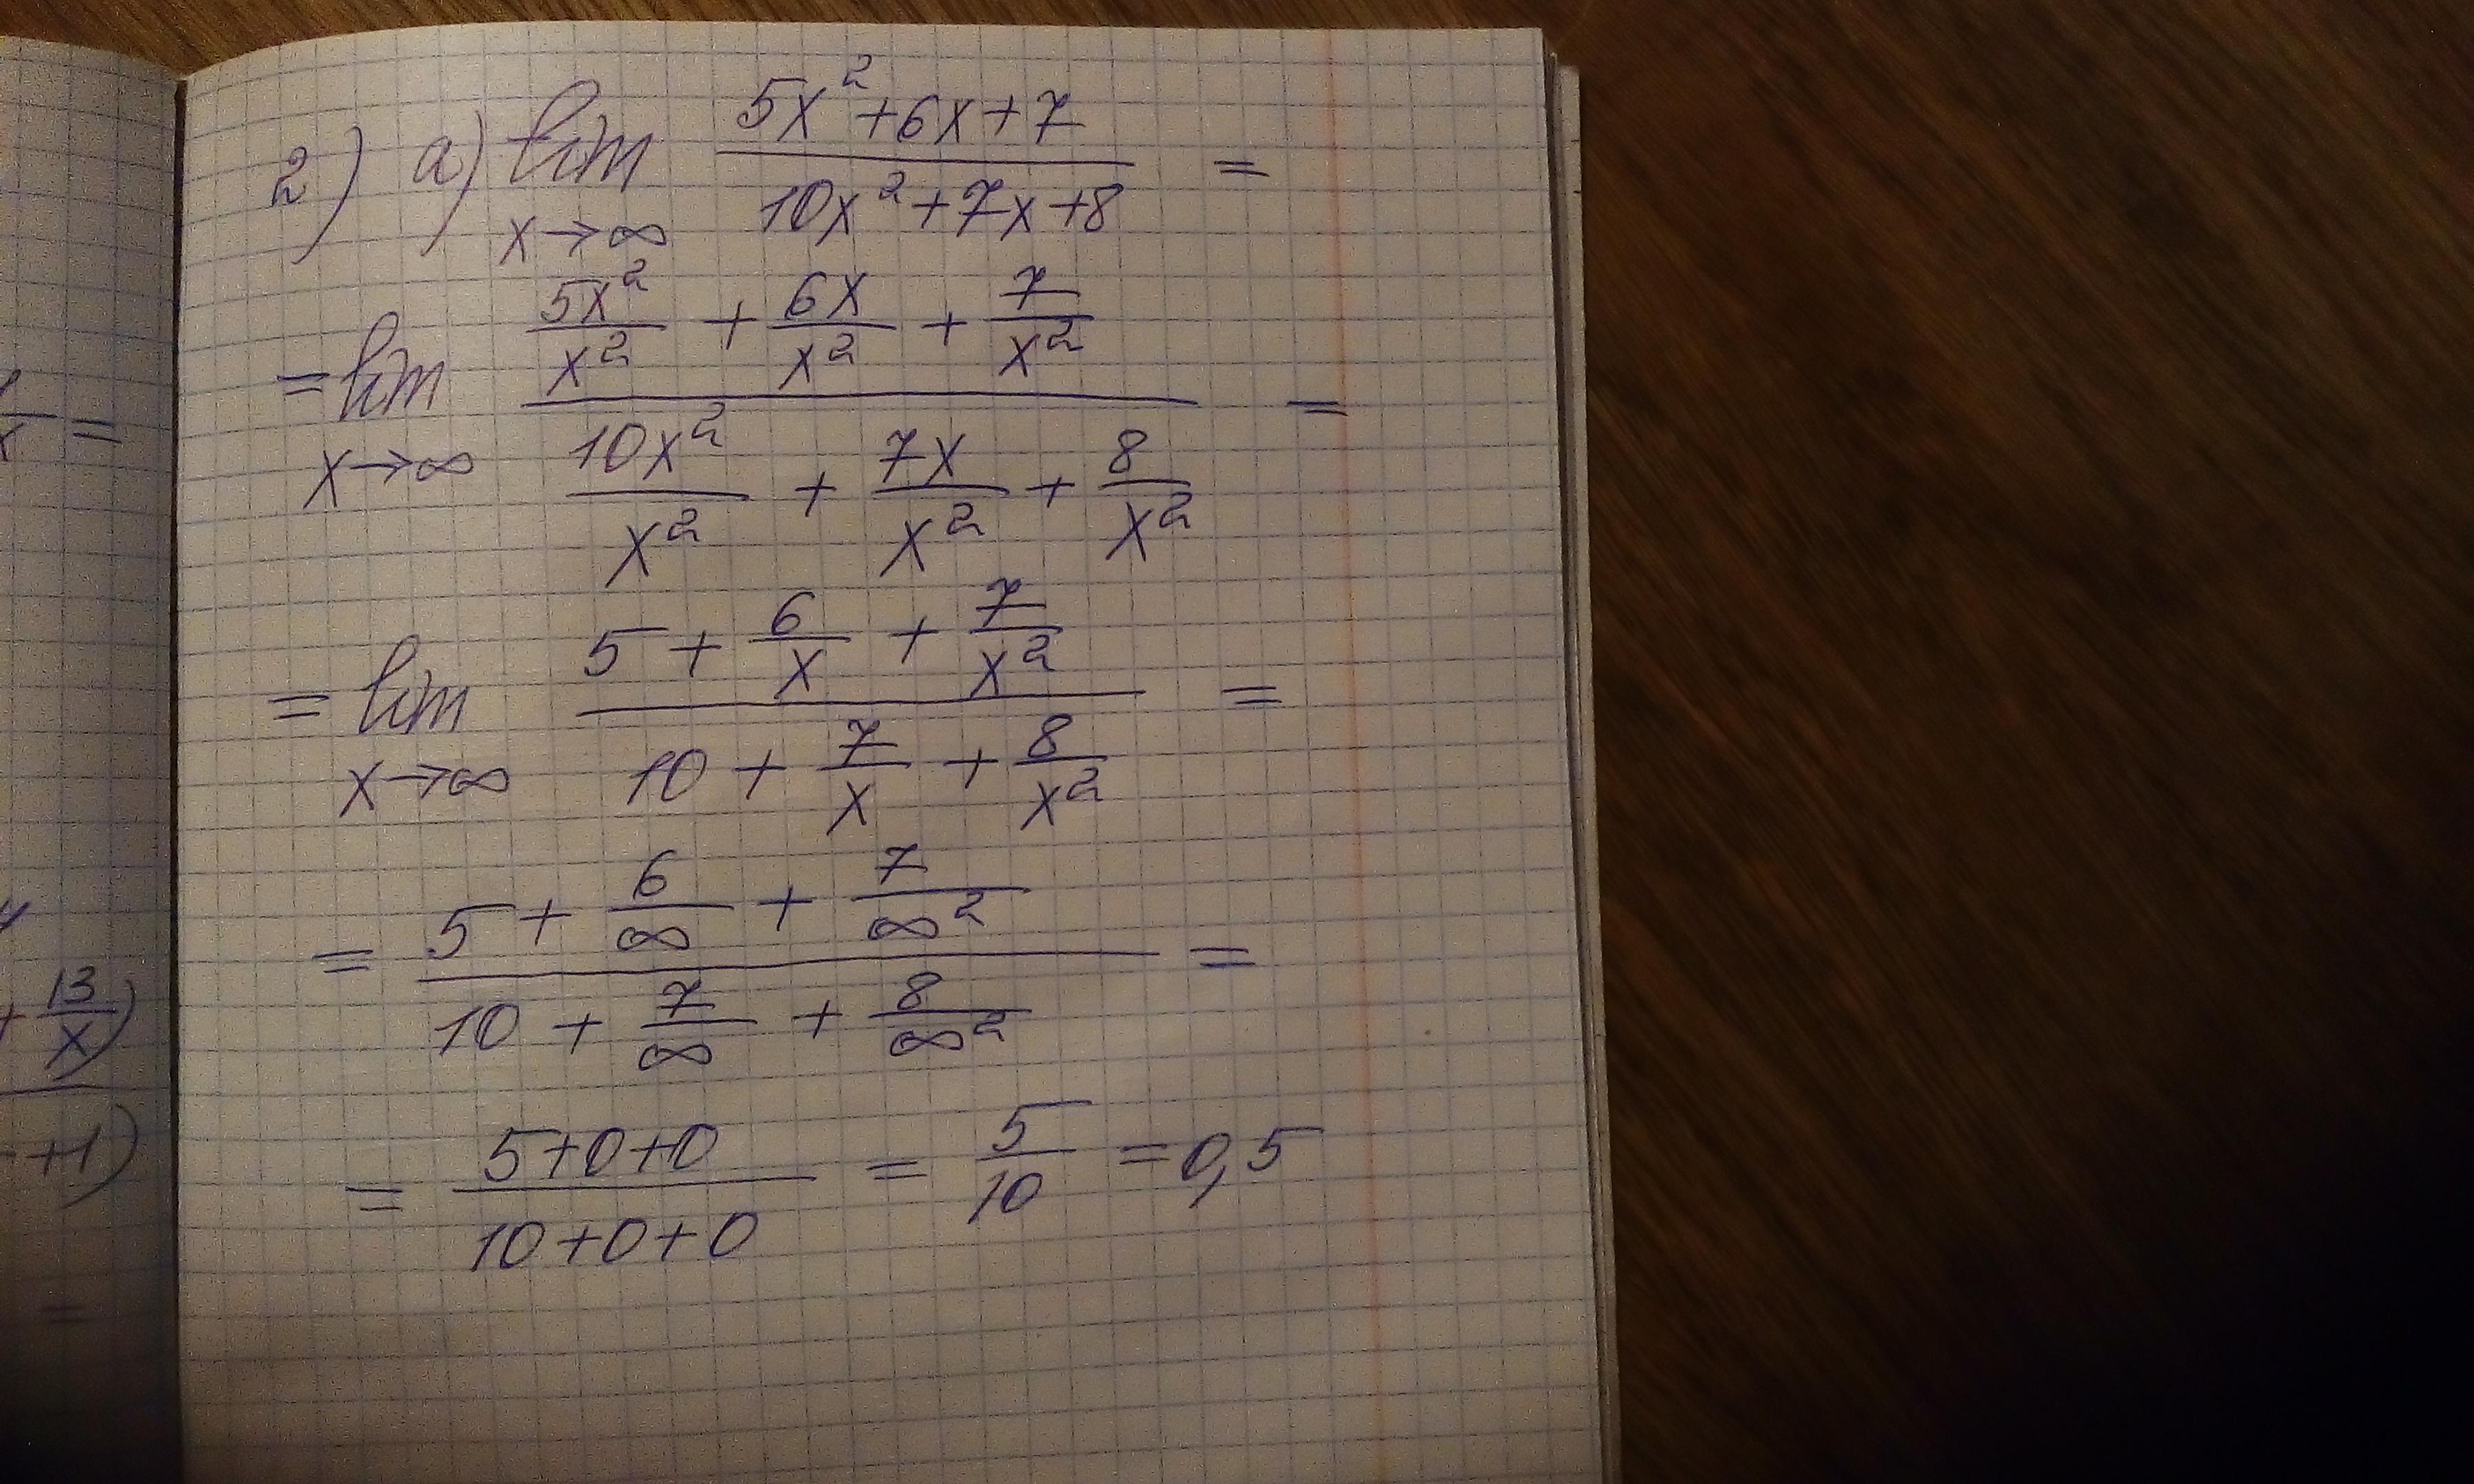 2) a) lim x→∞ (5x²+6x+7)/(10x²+7x+8) =
= lim x→∞ (5x²/x² + 6x/x² + 7/x²)/(10x²/x² + 7x/x² + 8/x²) =
= lim x→∞ (5 + 6/x + 7/x²)/(10 + 7/x + 8/x²) =
= (5 + 6/∞ + 7/∞²)/(10 + 7/∞ + 8/∞²) =
= (5+0+0)/(10+0+0) = 5/10 = 0,5
x =
+ 13/x)
+1)
=